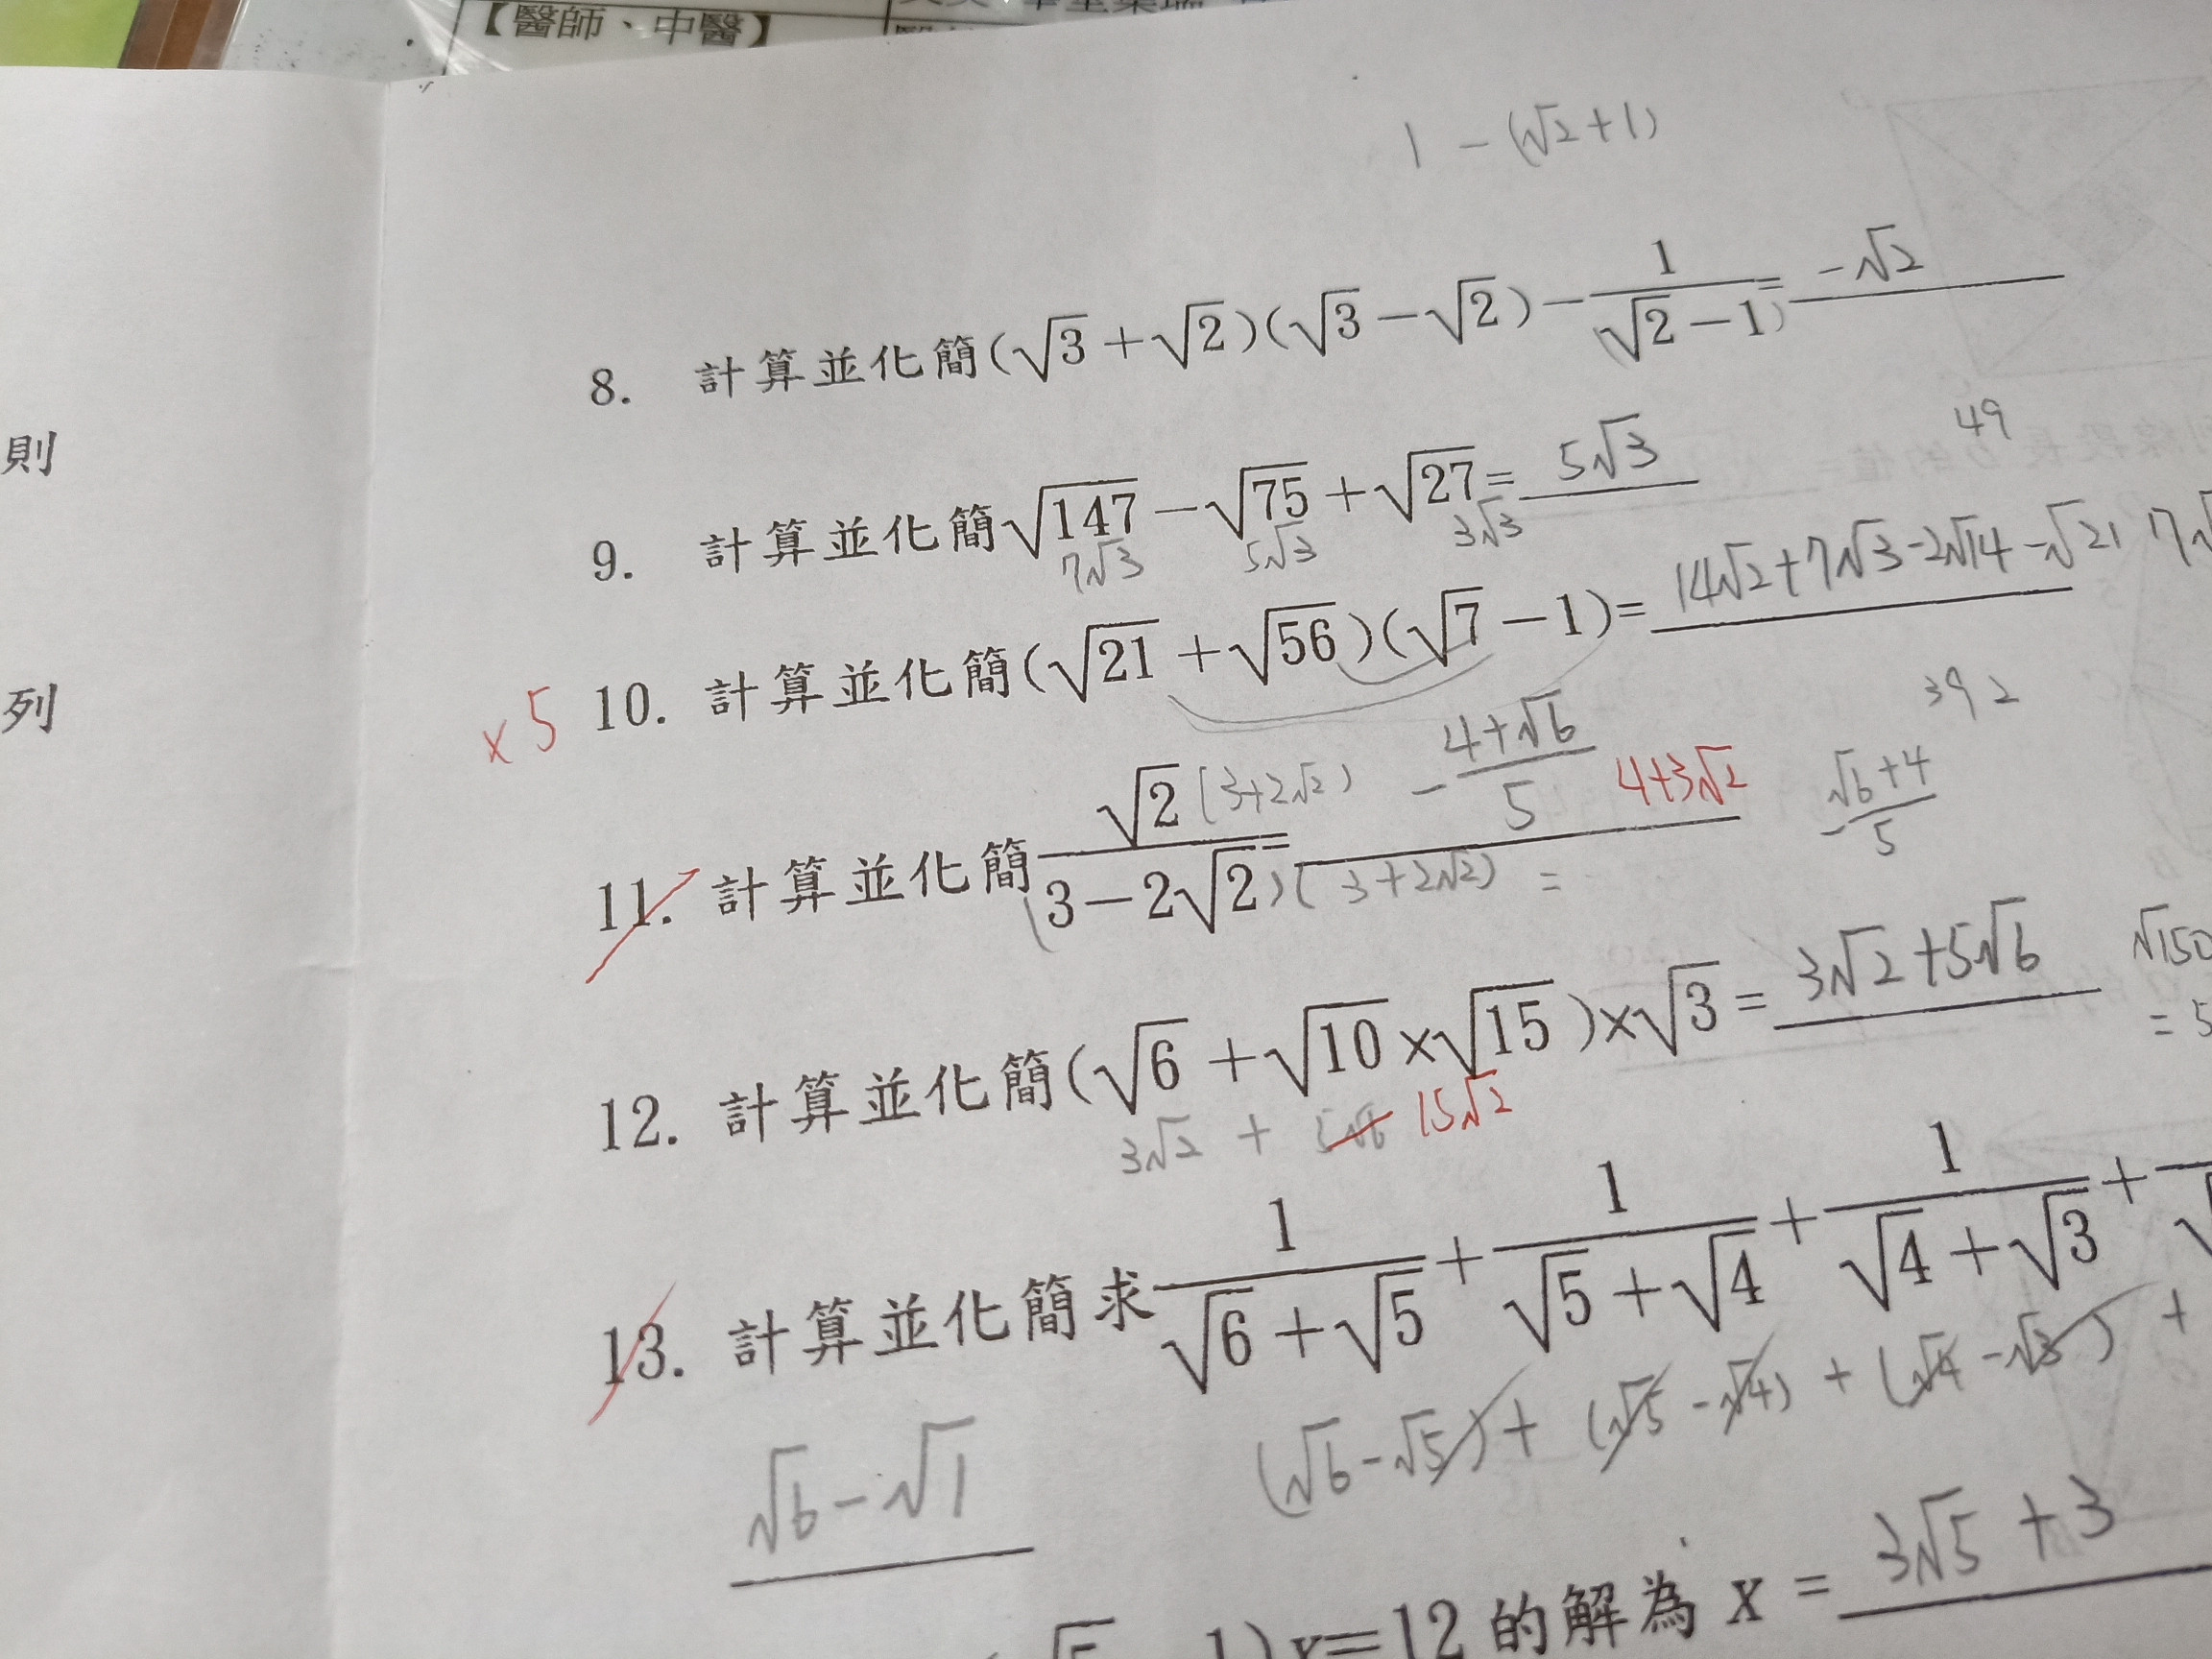 【醫師、中醫】
1 - (√2+1)
則
列
8. 計算並化簡(√3 + √2)(√3 - √2) - 1/(√2 - 1) = -√2
49
9. 計算並化簡√147 - √75 + √27 = 5√3
7√3 5√3 3√3
×5 10. 計算並化簡(√21 + √56)(√7 - 1) = 14√2+7√3-2√14-√21
392
11. 計算並化簡 √2(3+2√2)/(3 - 2√2)(3+2√2) = -(4+√6)/5 4+3√2
-(√6+4)/5
12. 計算並化簡(√6 + √10 × √15) × √3 = 3√2+5√6
√150
= 5
3√2 + 5√6 15√2
13. 計算並化簡求 1/(√6 + √5) + 1/(√5 + √4) + 1/(√4 + √3) +
(√6-√5) + (√5-√4) + (√4-√3) +
√6-√1
1)x=12 的解為 x = 3√5+3